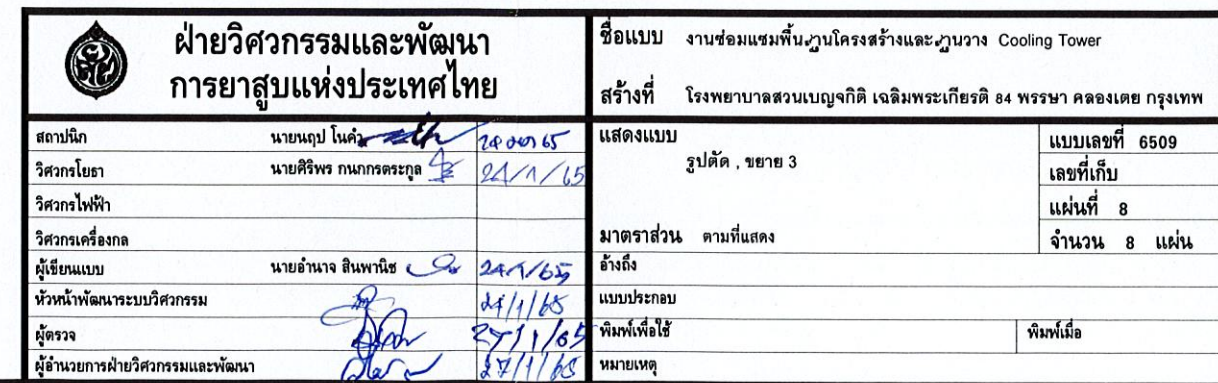 ฝ่ายวิศวกรรมและพัฒนา
การยาสูบแห่งประเทศไทย
ชื่อแบบ งานซ่อมแซมพื้นฐานโครงสร้างและฐานวาง Cooling Tower
สร้างที่ โรงพยาบาลสวนเบญจกิติ เฉลิมพระเกียรติ 84 พรรษา คลองเตย กรุงเทพ
สถาปนิก นายนฤป โนคำ
วิศวกรโยธา นายศิริพร กนกกรตระกูล 24/1/65
วิศวกรไฟฟ้า
วิศวกรเครื่องกล
ผู้เขียนแบบ นายอำนาจ สินพานิช 24/1/65
หัวหน้าพัฒนาระบบวิศวกรรม 24/1/65
ผู้ตรวจ 27/1/65
ผู้อำนวยการฝ่ายวิศวกรรมและพัฒนา 27/1/65
แสดงแบบ
รูปตัด , ขยาย 3
มาตราส่วน ตามที่แสดง
แบบเลขที่ 6509
เลขที่เก็บ
แผ่นที่ 8
จำนวน 8 แผ่น
อ้างถึง
แบบประกอบ
พิมพ์เพื่อใช้ พิมพ์เมื่อ
หมายเหตุ